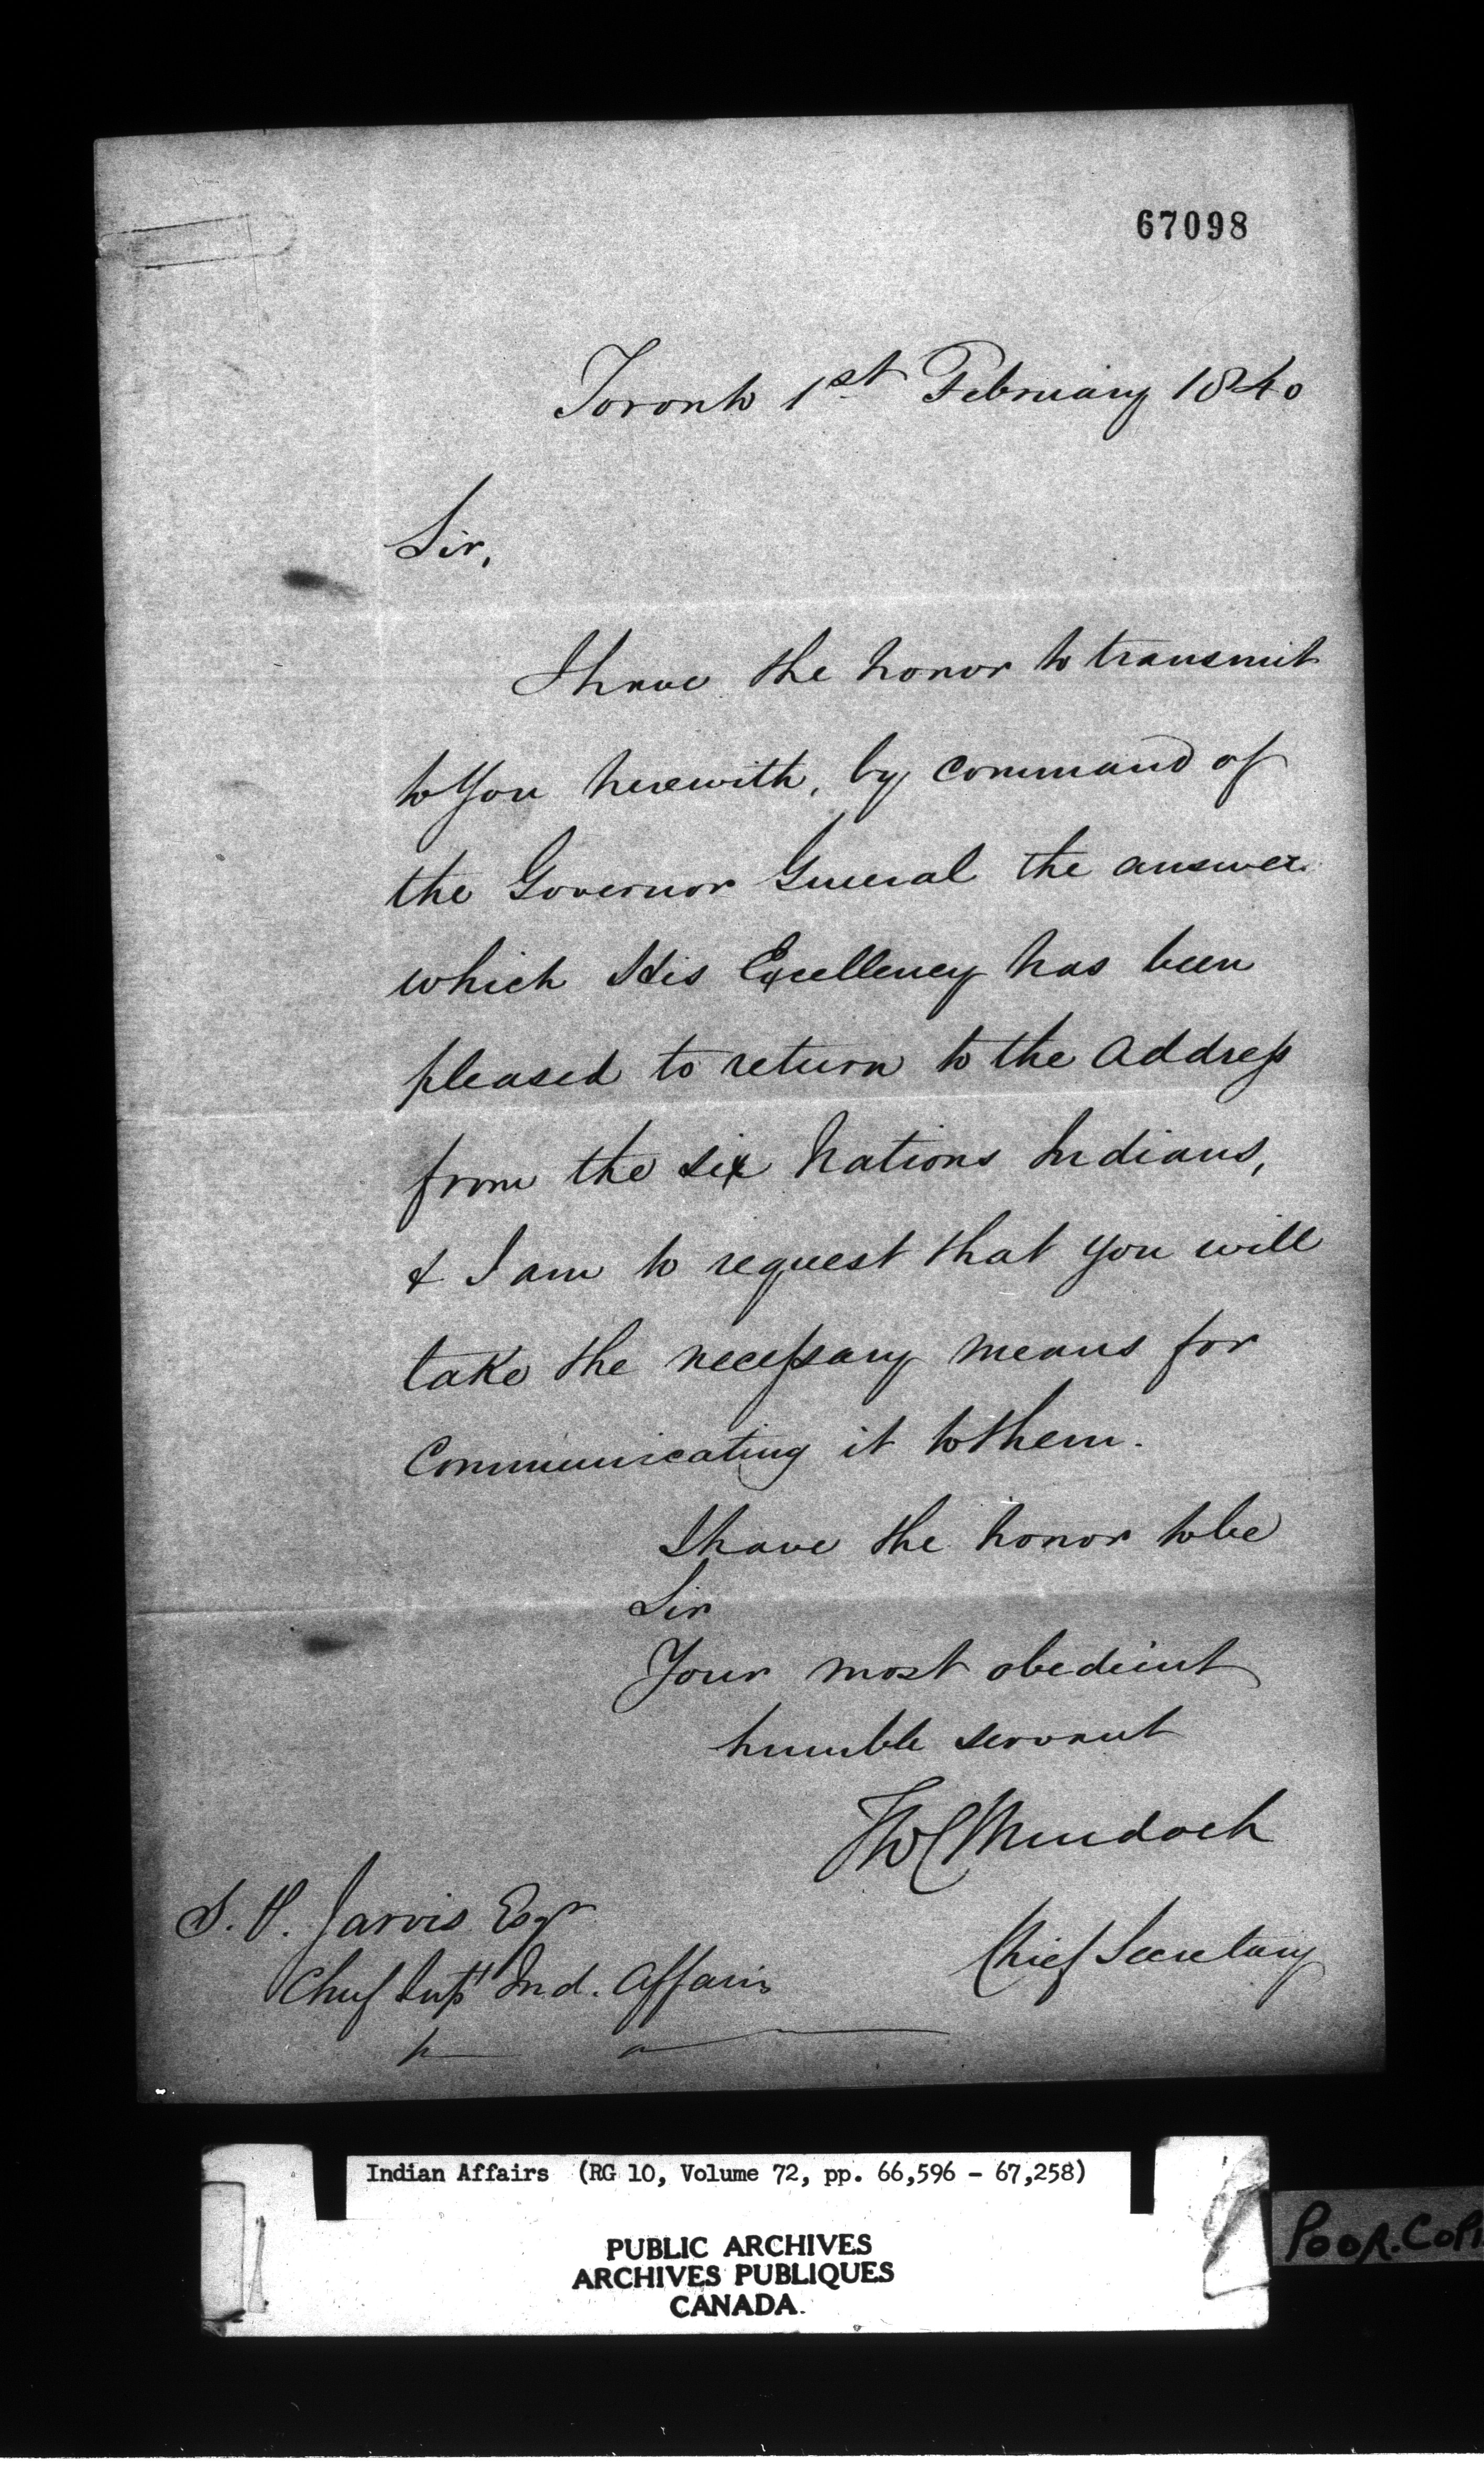 67098
Toronto 1st February 1840
Sir,
I have the honor to transmit
to You herewith, by command of
the Governor General the answer
which His Excellency has been
pleased to return to the Address
from the six Nations Indians,
& I am to request that you will
take the necessary means for
Communicating it to them.
I have the honor to be
Sir
Your most obedient
humble servant
T W C Murdoch
Chief Secretary
S. P. Jarvis Esqr
Chief Supt Ind. Affairs
Indian Affairs (RG 10, Volume 72, pp. 66,596 - 67,258)
PUBLIC ARCHIVES
ARCHIVES PUBLIQUES
CANADA.
POOR.COP